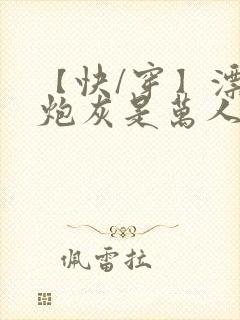 【快/穿】漂
炮灰是萬人
佩雷拉